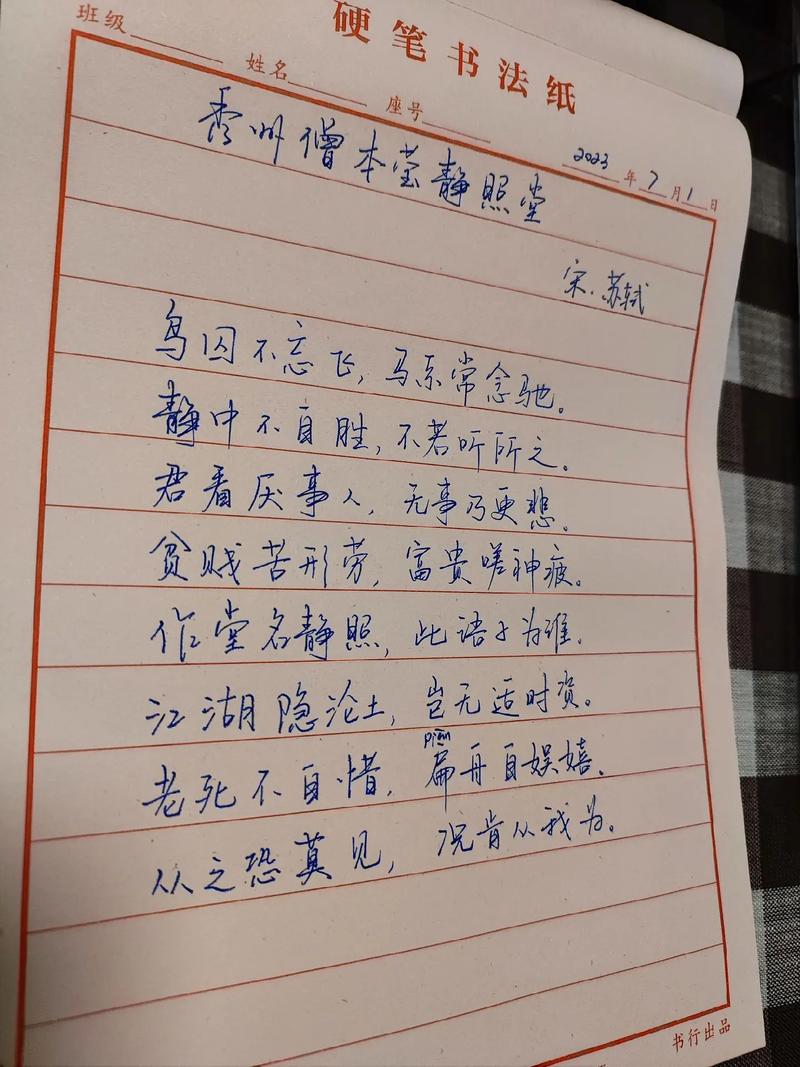 硬笔书法纸
班级 姓名 座号 2023年7月1日
秀州僧本莹静照堂
宋.苏轼
鸟囚不忘飞，马系常念驰。
静中不自胜，不若听所之。
君看厌事人，无事乃更悲。
贫贱苦形劳，富贵嗟神疲。
作堂名静照，此语子为谁。
江湖隐沦士，岂无适时资。
piān
老死不自惜，扁舟自娱嬉。
从之恐莫见，况肯从我为。
书行出品